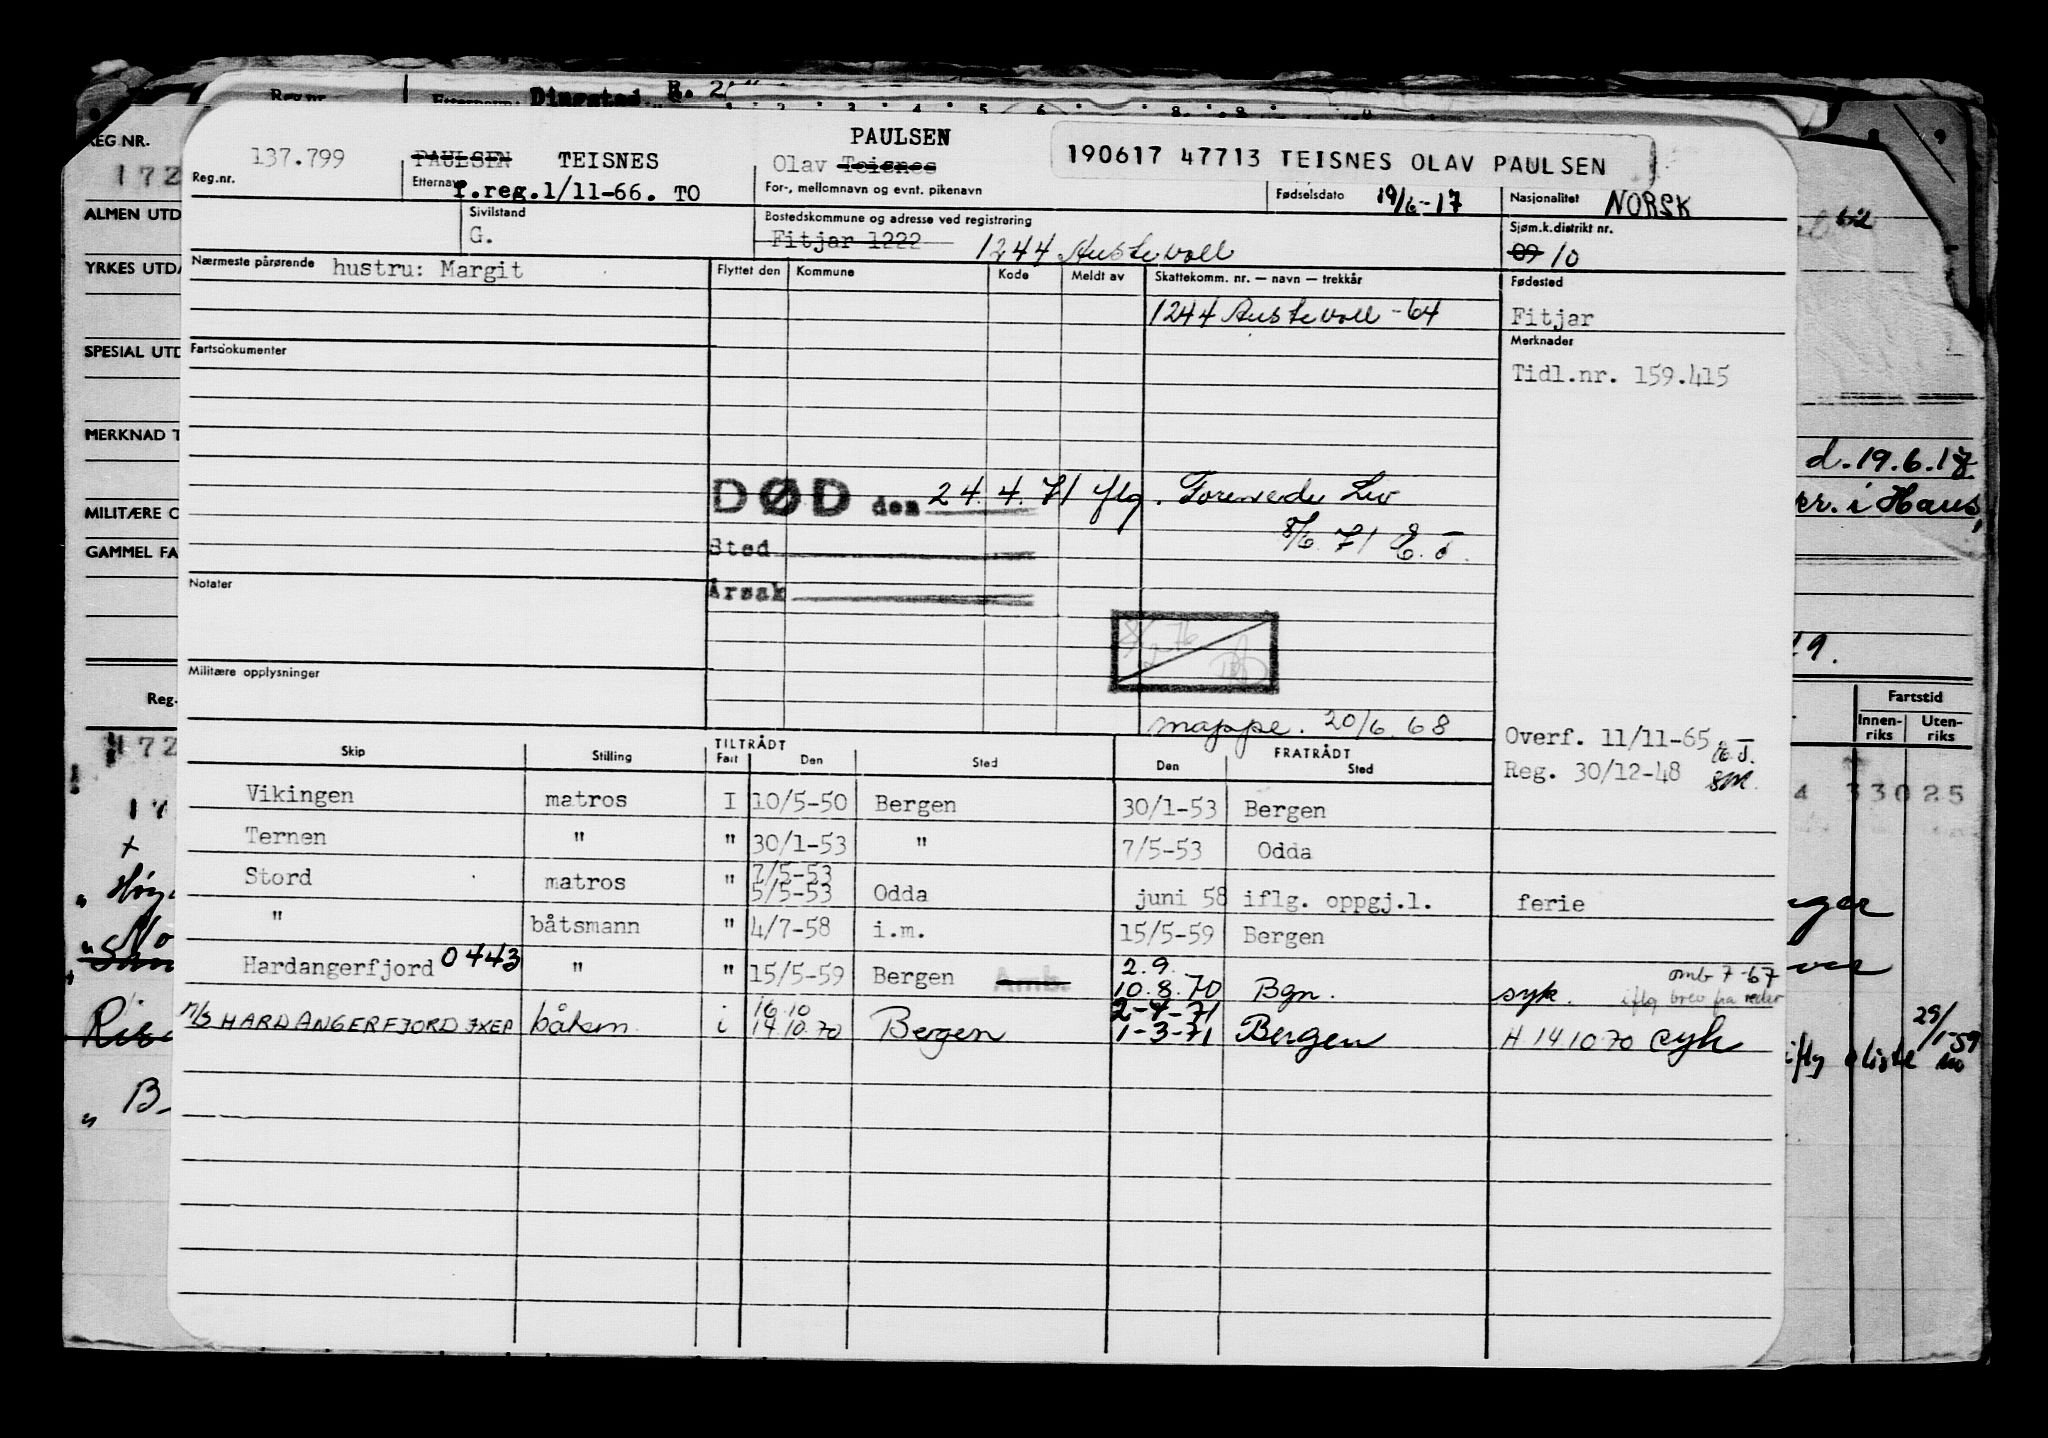 Reg.nr.
Etternavn: Dingstad
REG NR.
172
ALMEN UTD
YRKES UTDA
SPESIAL UTD
MERKNAD T
MILITÆRE O
GAMMEL FA
Reg.
172
137.799
Reg.nr.
PAULSEN TEISNES
Etternavn
f.reg.1/11-66. TO
PAULSEN
Olav Teisnes
For-, mellomnavn og evnt. pikenavn
190617 47713 TEISNES OLAV PAULSEN
Fødselsdato 19/6-17
Nasjonalitet NORSK
Sivilstand
G.
Bostedskommune og adresse ved registrering
Fitjar 1222 1244 Austevoll
Sjøm.k.distrikt nr.
09 10
Nærmeste pårørende hustru: Margit
Flyttet den Kommune Kode Meldt av Skattekomm. nr. — navn — trekkår
1244 Austevoll -64
Fødested
Fitjar
Fartsdokumenter
Merknader
Tidl.nr. 159.415
DØD den 24 4. 71 iflg. Forenede Liv
8/6. 71 E. J.
Sted
Årsak
Notater
8/2 76
Militære opplysninger
mappe. 20/6. 68
Overf. 11/11-65 E.J.
Reg. 30/12-48 SM.
Skip Stilling TILTRÅDT FRATRÅDT
Fart Den Sted Den Sted
Vikingen matros I 10/5-50 Bergen 30/1-53 Bergen
Ternen " " 30/1-53 " 7/5-53 Odda
Stord matros " 7/5-53
5/5-53 Odda juni 58 iflg. oppgj.l. ferie
" båtsmann " 4/7-58 i.m. 15/5-59 Bergen
Hardangerfjord 0443 " " 15/5-59 Bergen Amb. 2.9.
10.8.70 Bgn. syk. omb 7-67
iflg brev fra reder
M/S HARDANGERFJORD JXEP båtsm i 16.10
14.10.70 Bergen 2-4-71
1-3-71 Bergen H 14 10 70 syk
d. 19.6.18
i Haus,
Fartstid
Innen-
riks Uten-
riks
33025
29/1-59
iflg oliste